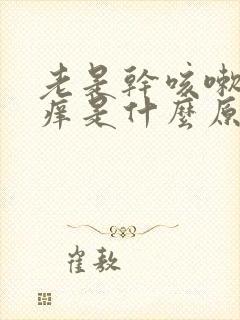 老是幹咳嗽
痒是什麼原
崔敖